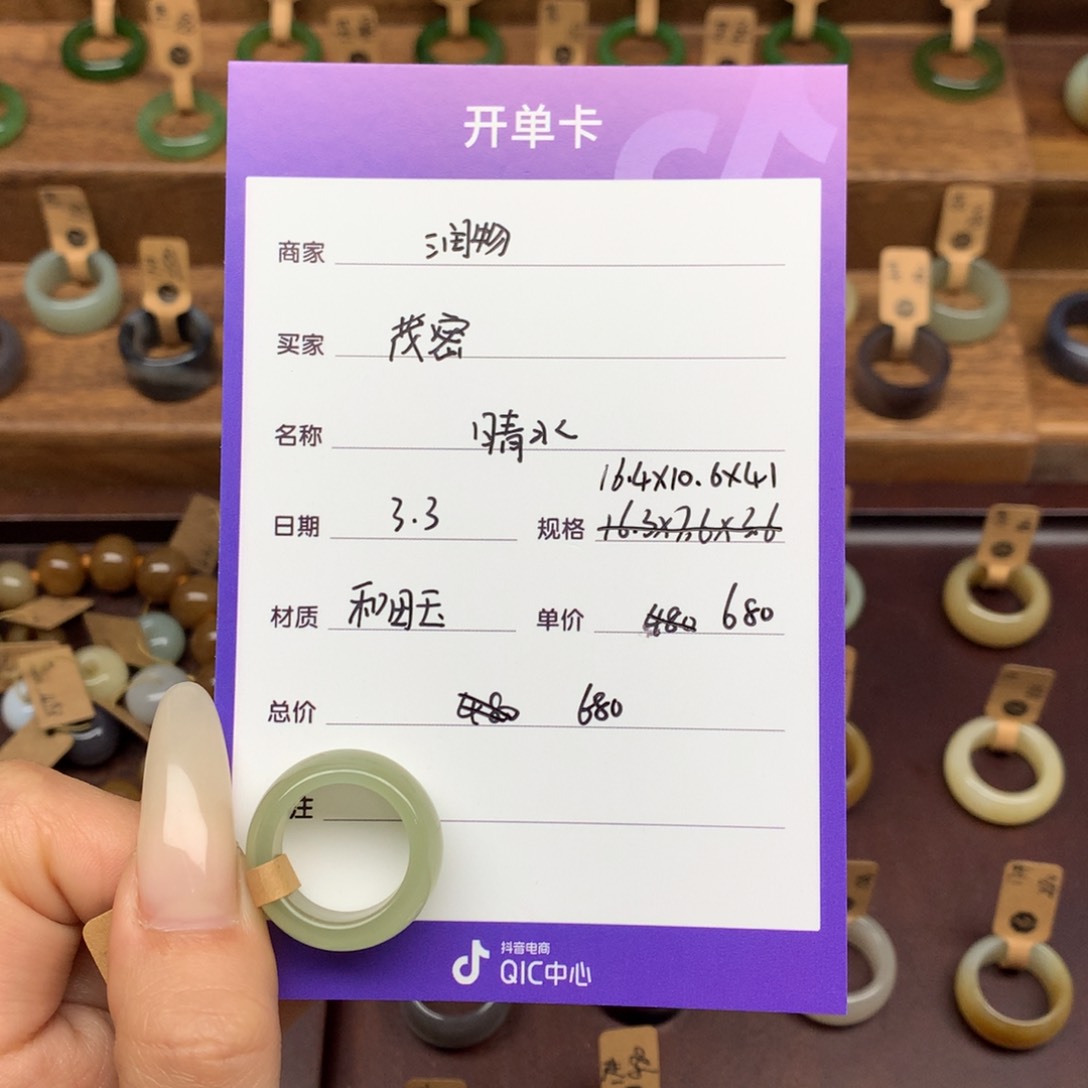 开单卡
商家 润物
买家 茂密
名称 晴水
16.4X10.6X4.1
日期 3.3 规格 16.3x7.6x3.6
材质 和田玉 单价 480 680
总价 480 680
注
抖音电商
QIC中心